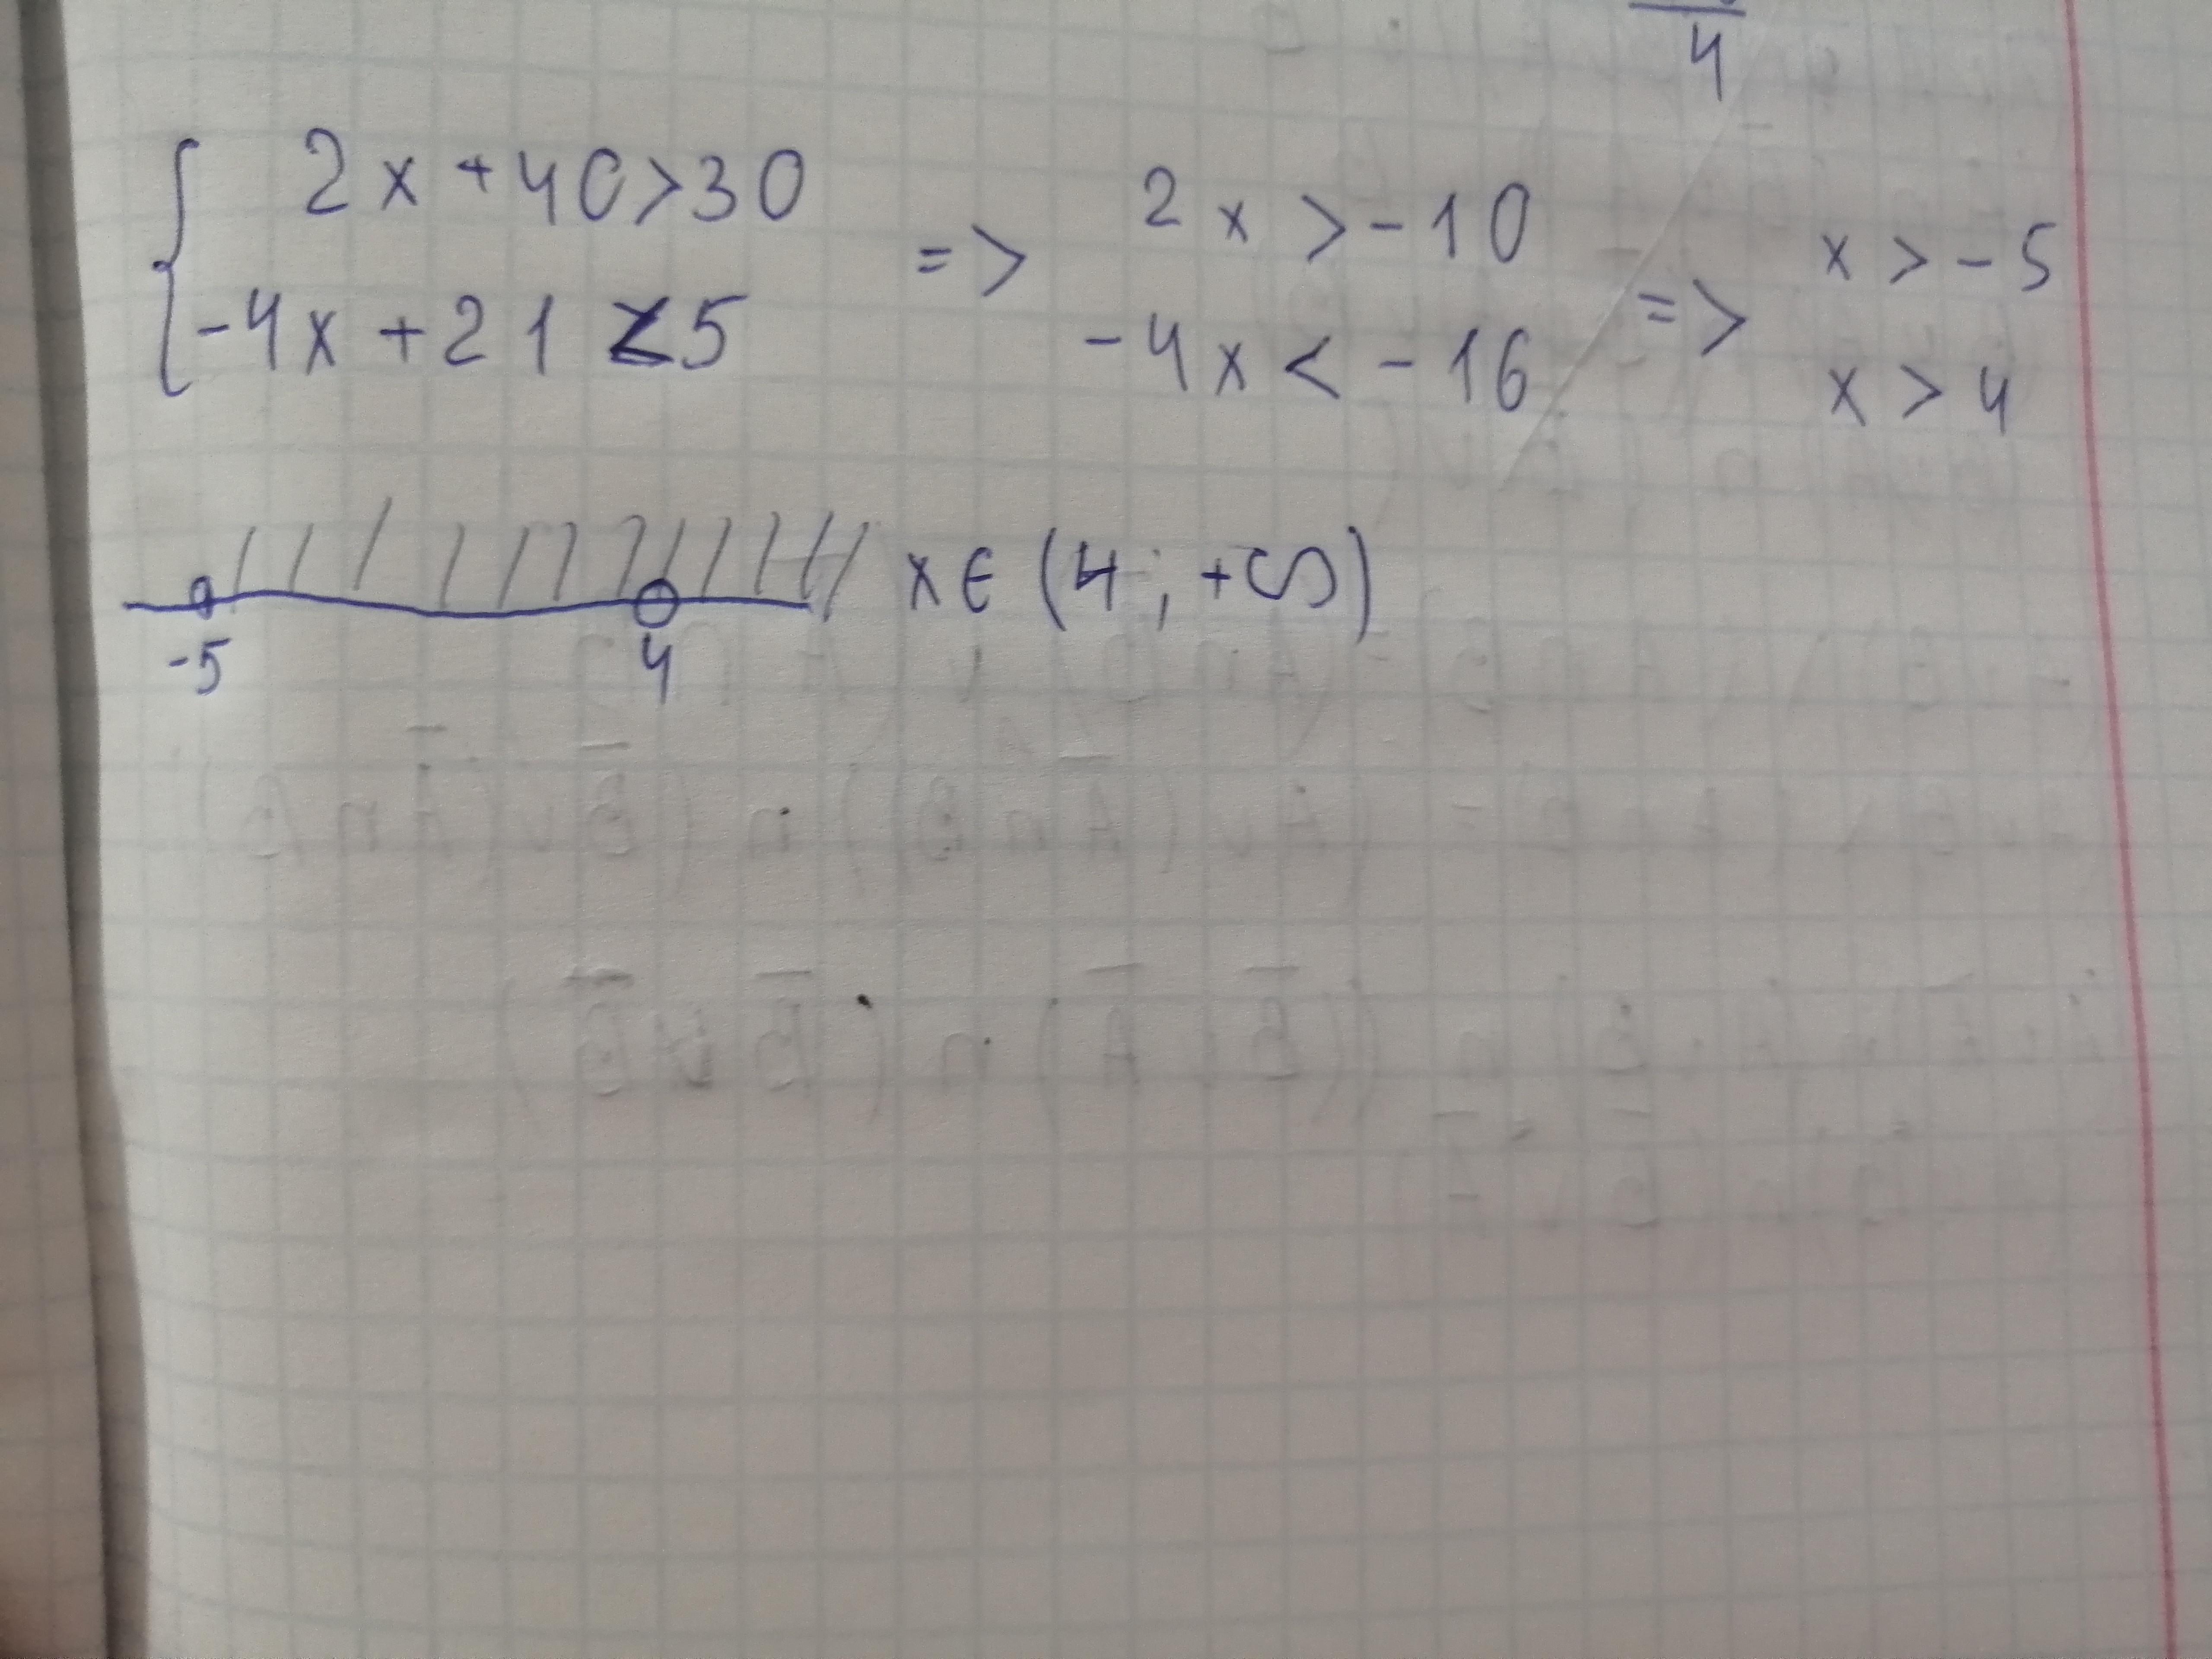 4
2x + 40 > 30
-4x + 21 < 5
=>
2x > -10
-4x < -16
=>
x > -5
x > 4
x ∈ (4; +∞)
-5 4